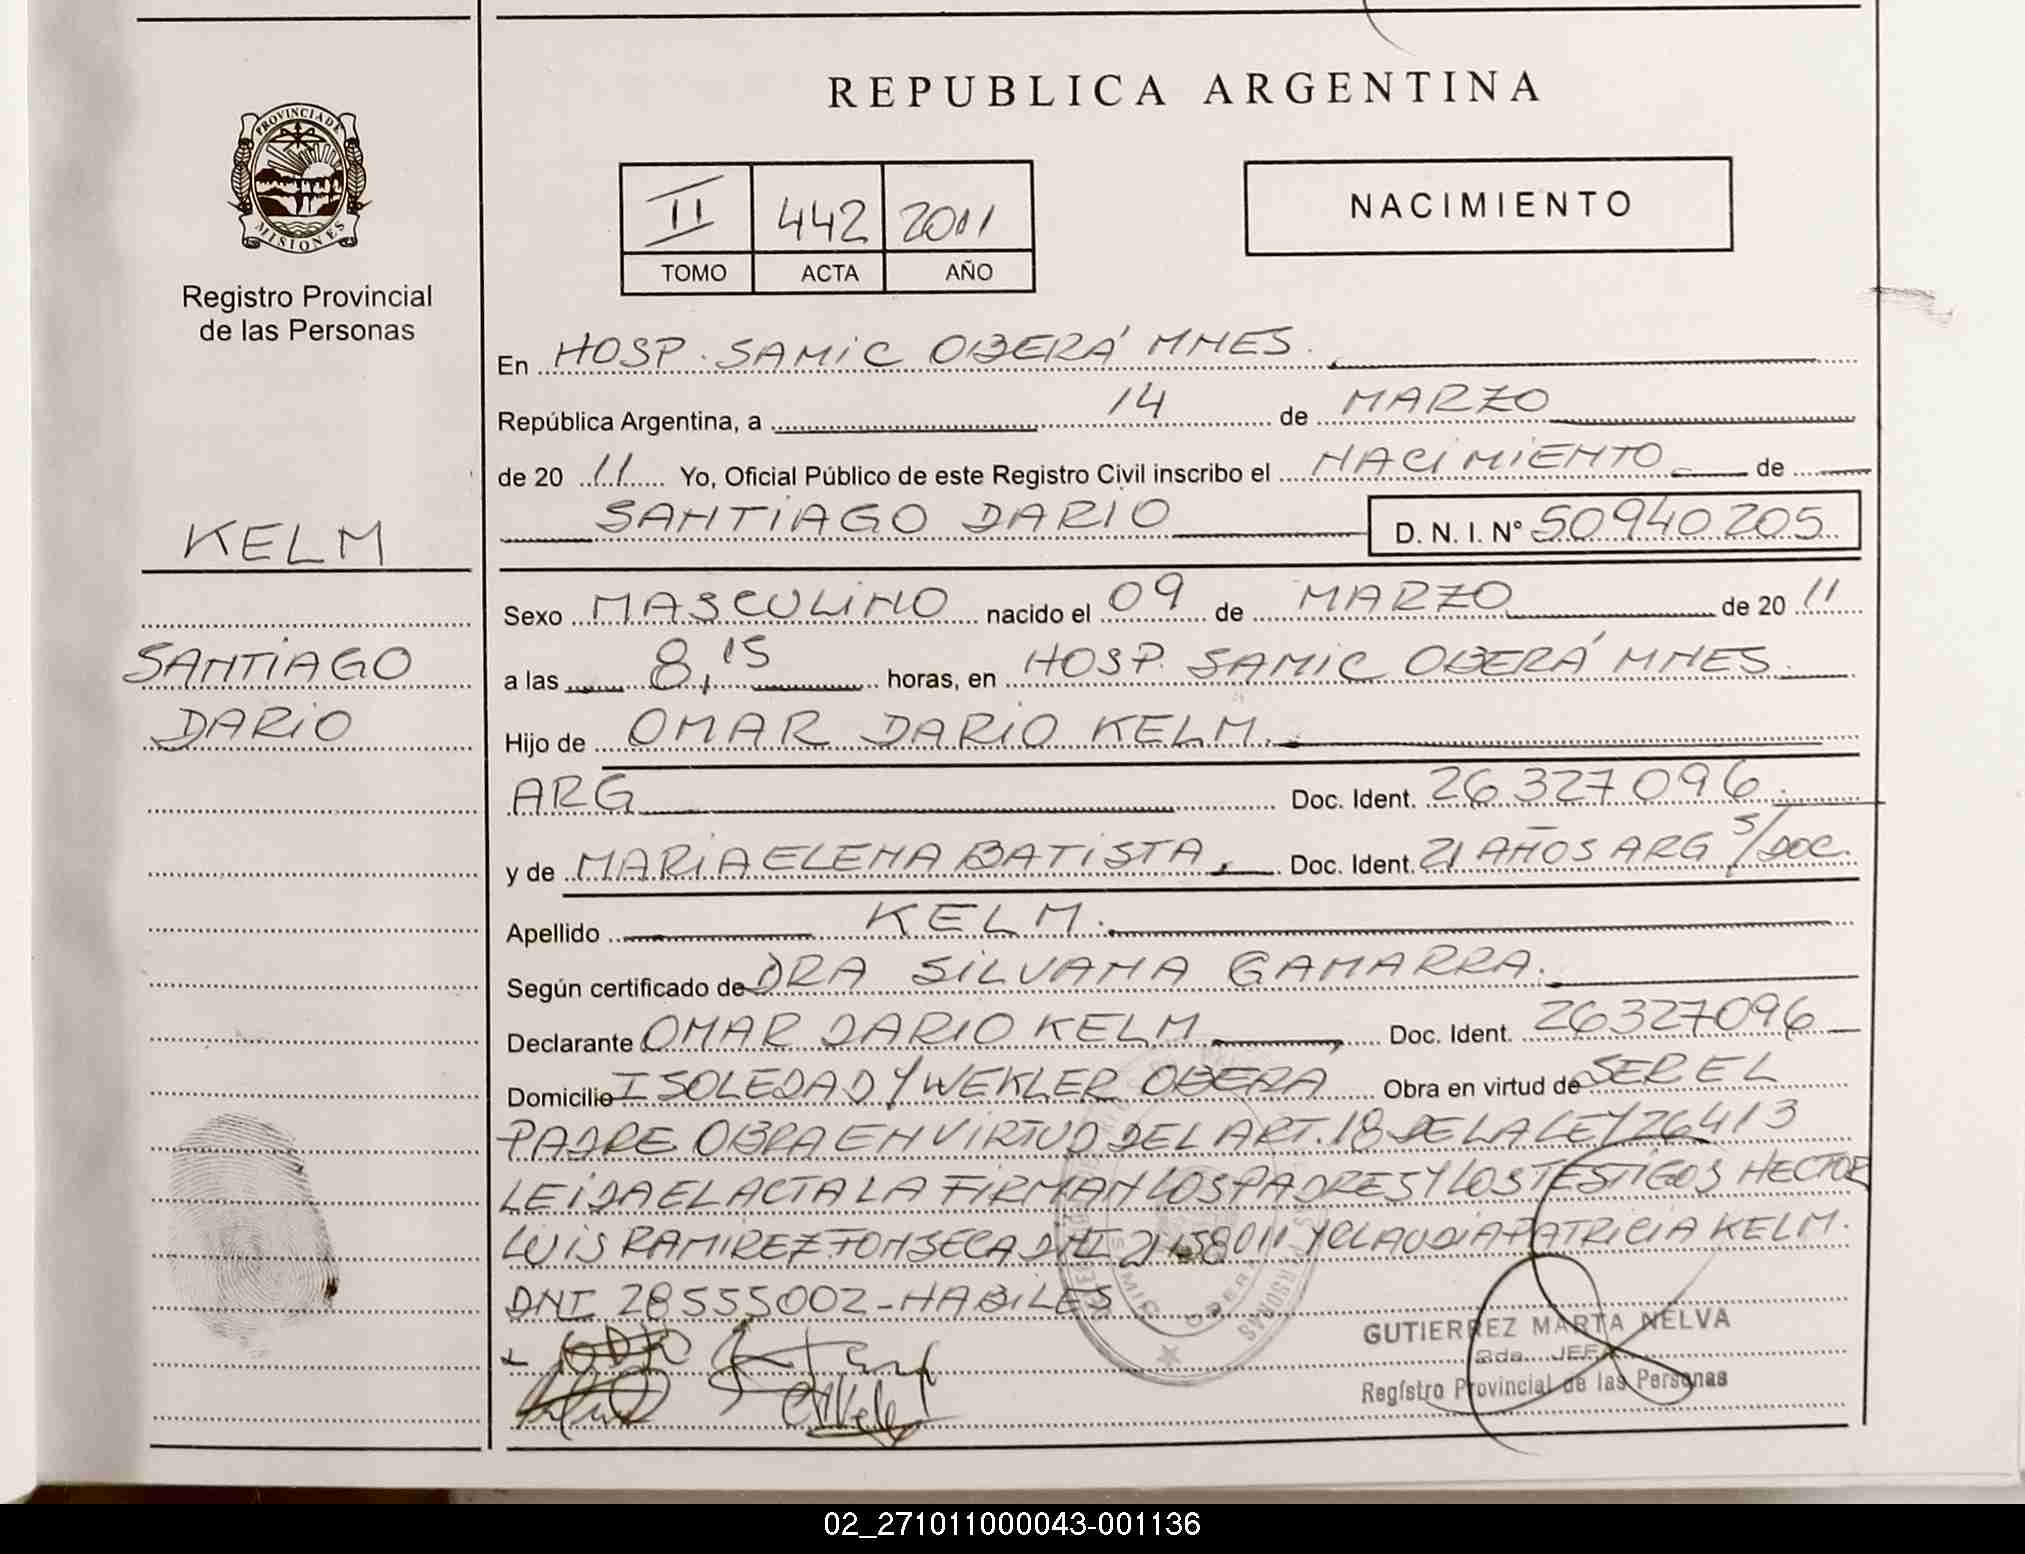 REPUBLICA ARGENTINA
PROVINCIA DE
MISIONES
Registro Provincial
de las Personas
II 442 2011
TOMO ACTA AÑO
NACIMIENTO
En HOSP. SAMIC OBERÁ MNES.
República Argentina, a 14 de MARZO
de 20 11 Yo, Oficial Público de este Registro Civil inscribo el NACIMIENTO de
SANTIAGO DARIO D. N. I. Nº 50940205
KELM
SANTIAGO
DARIO
Sexo MASCULINO nacido el 09 de MARZO de 20 11
a las 8,15 horas, en HOSP. SAMIC OBERÁ MNES.
Hijo de OMAR DARIO KELM.
ARG Doc. Ident. 26327096.
y de MARIA ELENA BATISTA, Doc. Ident. 21 AÑOS ARG S/DOC.
Apellido KELM.
Según certificado de DRA SILVANA GAMARRA.
Declarante OMAR DARIO KELM, Doc. Ident. 26327096
Domicilio I SOLEDAD Y WEKLER OBERA Obra en virtud de SER EL
PADRE OBRA EN VIRTUD DEL ART. 18 DE LA LEY 26413
LEIDA EL ACTA LA FIRMAN LOS PADRES Y LOS TESTIGOS HECTOR
LUIS RAMIREZ FONSECA DNI Y CLAUDIA PATRICIA KELM.
DNI 28555002 - HABILES
GUTIERREZ MARTA NELVA
2da. JEFA
Registro Provincial de las Personas
02_271011000043-001136